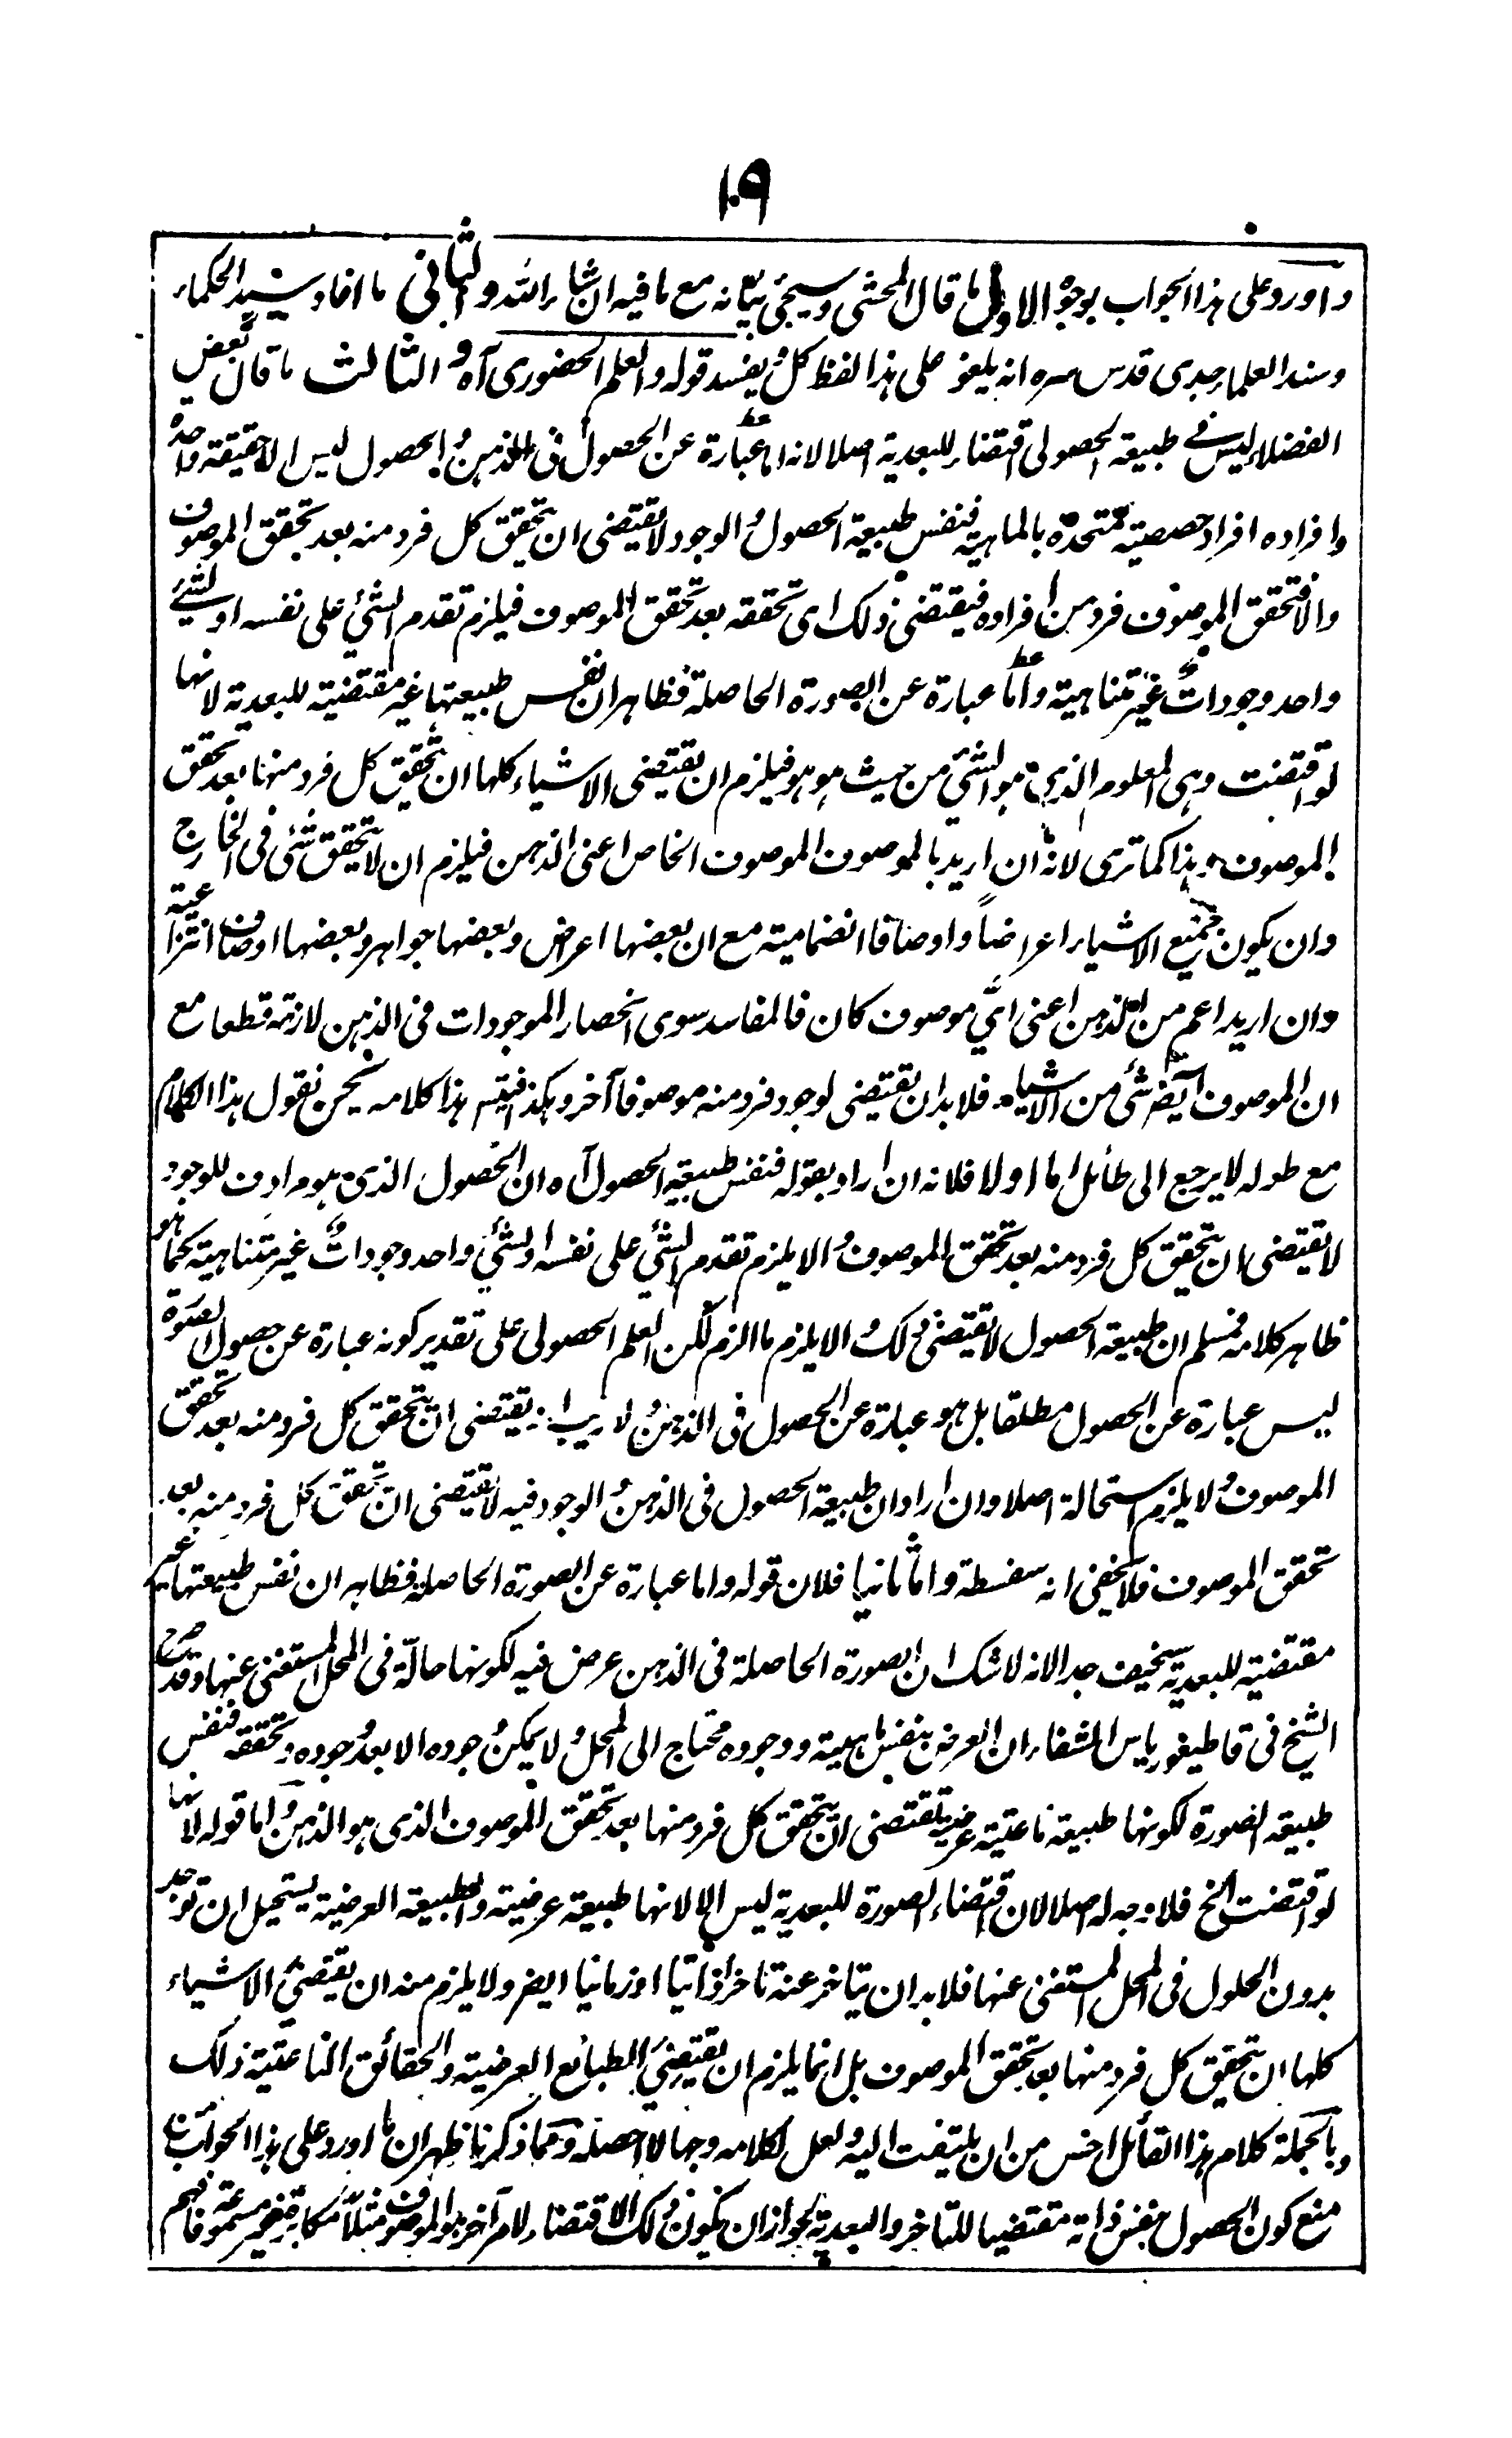 ١٠٩
واورد على هذا الجواب بوجوه الاول ما قال المحشى وسيجئ بيانه مع ما فيه ان شاء الله والثانى ما افاد سيد الحكماء
وسند العلماء جدى قدس سره انه يلغو على هذا لفظ كل ويفسد قوله والعلم الحضورى آه والثالث ما قال بعض
الفضلاء ليس فى طبيعة الحصولى اقتضاء للبعدية اصلا لانه اما عبارة عن الحصول فى الذهن والحصول ليس الا حقيقة واحدة
وافراده افراد حصصية متحدة بالماهية فنفس طبيعة الحصول والوجود لا يقتضى ان يتحقق كل فرد منه بعد تحقق الموصوف
والا فتحقق الموصوف فرد من افراده فيقتضى ذلك اى تحققه بعد تحقق الموصوف فيلزم تقدم الشئ على نفسه او لشئ
واحد وجودات غير متناهية واما عبارة عن الصورة الحاصلة فظاهر ان نفس طبيعتها غير مقتضية للبعدية لانها
لو اقتضت وهى المعلوم الذى هو الشئ من حيث هو هو فيلزم ان يقتضى الاشياء كلها ان يتحقق كل فرد منها بعد تحقق
الموصوف وهذا كما ترى لانه ان اريد بالموصوف الموصوف الخاص اعنى الذهن فيلزم ان لا يتحقق شئ فى الخارج
وان يكون جميع الاشياء اعراضاً واوصافا انضمامية مع ان بعضها اعراض وبعضها جواهر وبعضها اوصاف انتزاعية
وان اريد اعم من الذهن اعنى اىّ موصوف كان فالمفاسد سوى انحصار الموجودات فى الذهن لازمة قطعا مع
ان الموصوف ايضا شئ من الاشياء فلابد ان يقتضى لوجود فرد منه موصوفا آخر وهكذا فيتم هذا كلامه نحن نقول هذا الكلام
مع طوله لا يرجع الى طائل اما اولا فلانه ان اراد بقوله فنفس طبيعة الحصول آه ان الحصول الذى هو مرادف للوجود
لا يقتضى ان يتحقق كل فرد منه بعد تحقق الموصوف والا يلزم تقدم الشئ على نفسه او لشئ واحد وجودات غير متناهية كما هو
ظاهر كلامه فمسلم ان طبيعة الحصول لا تقتضى ذلك والا يلزم ما الزم لكن العلم الحصولى على تقدير كونه عبارة عن حصول الصورة
ليس عبارة عن الحصول مطلقا بل هو عبارة عن الحصول فى الذهن ولا ريب انه يقتضى ان يتحقق كل فرد منه بعد تحقق
الموصوف ولا يلزم استحالة اصلا وان اراد ان طبيعة الحصول فى الذهن والوجود فيه لا يقتضى ان يتحقق كل فرد منه بعد
تحقق الموصوف فلا يخفى انه سفسطة واما ثانيا فلان قوله واما عبارة عن الصورة الحاصلة فظاهر ان نفس طبيعتها غير
مقتضية للبعدية سخيف جدا لانه لا شك ان الصورة الحاصلة فى الذهن عرض فيه لكونها حالّة فى المحل المستغنى عنها وقد صرح
الشيخ فى قاطيغورياس الشفاء ان العرض بنفس ماهيته ووجوده محتاج الى المحل ولا يمكن وجوده الا بعد وجوده وتحققه فنفس
طبيعة الصورة لكونها طبيعة ناعتية عرضية تقتضى ان يتحقق كل فرد منها بعد تحقق الموصوف الذى هو الذهن واما قوله لانها
لو اقتضت الخ فلا وجه له اصلا لان اقتضاء الصورة للبعدية ليس الا لانها طبيعة عرضية والطبيعة العرضية يستحيل ان توجد
بدون الحلول فى المحل المستغنى عنها فلابد ان يتاخر عنه تاخرا ذاتيا او زمانيا ايضا ولا يلزم منه ان يقتضى الاشياء
كلها ان يتحقق كل فرد منها بعد تحقق الموصوف بل انما يلزم ان يقتضى الطبائع العرضية والحقائق الناعتية ذلك
وبالجملة كلام هذا القائل اخس من ان يلتفت اليه ولعل لكلامه وجها لا احصله ومما ذكرنا ظهر ان ما اورد على هذا الجواب من
منع كون الحصول بنفس ذاته مقتضيا للتاخر والبعدية لجواز ان يكون ذلك الاقتضاء لامر آخر هو الموصوف مثلاً مكابرة غير مسموعة فافهم